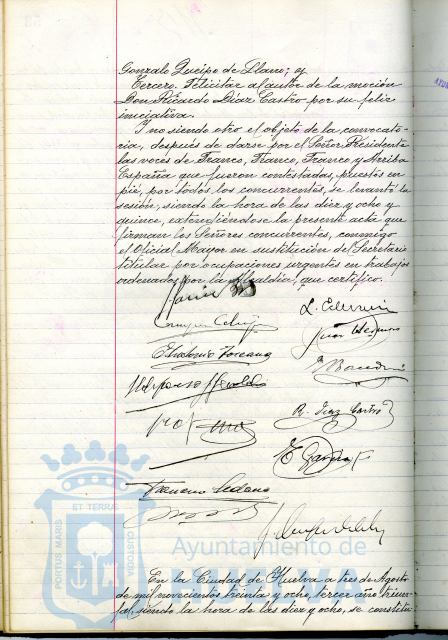 Gonzalo Queipo de Llano; y
Tercero. Felicitar al autor de la moción
Don Ricardo Díaz Castro por su feliz
iniciativa.
Y no siendo otro el objeto de la convocato-
ria, después de darse por el Señor Presidente
las voces de Franco, Franco, Franco y Arriba
España que fueron contestadas, puestos en
pié, por todos los concurrentes, se levantó la
sesión, siendo la hora de las diez y ocho y
quince, extendiéndose la presente acta que
firman los Señores concurrentes, conmigo
el Oficial Mayor en sustitución del Secretario
titular por ocupaciones urgentes en trabajos
ordenados por la Alcaldía, que certifico.
R. Díaz Castro
Francisco Sedano
ET TERRAE
PORTUS MARIS
CUSTODIA
Ayuntamiento de
HUELVA
En la Ciudad de Huelva a tres de Agosto
de mil novecientos treinta y ocho, tercer año triun-
fal, siendo la hora de las diez y ocho, se constitu-